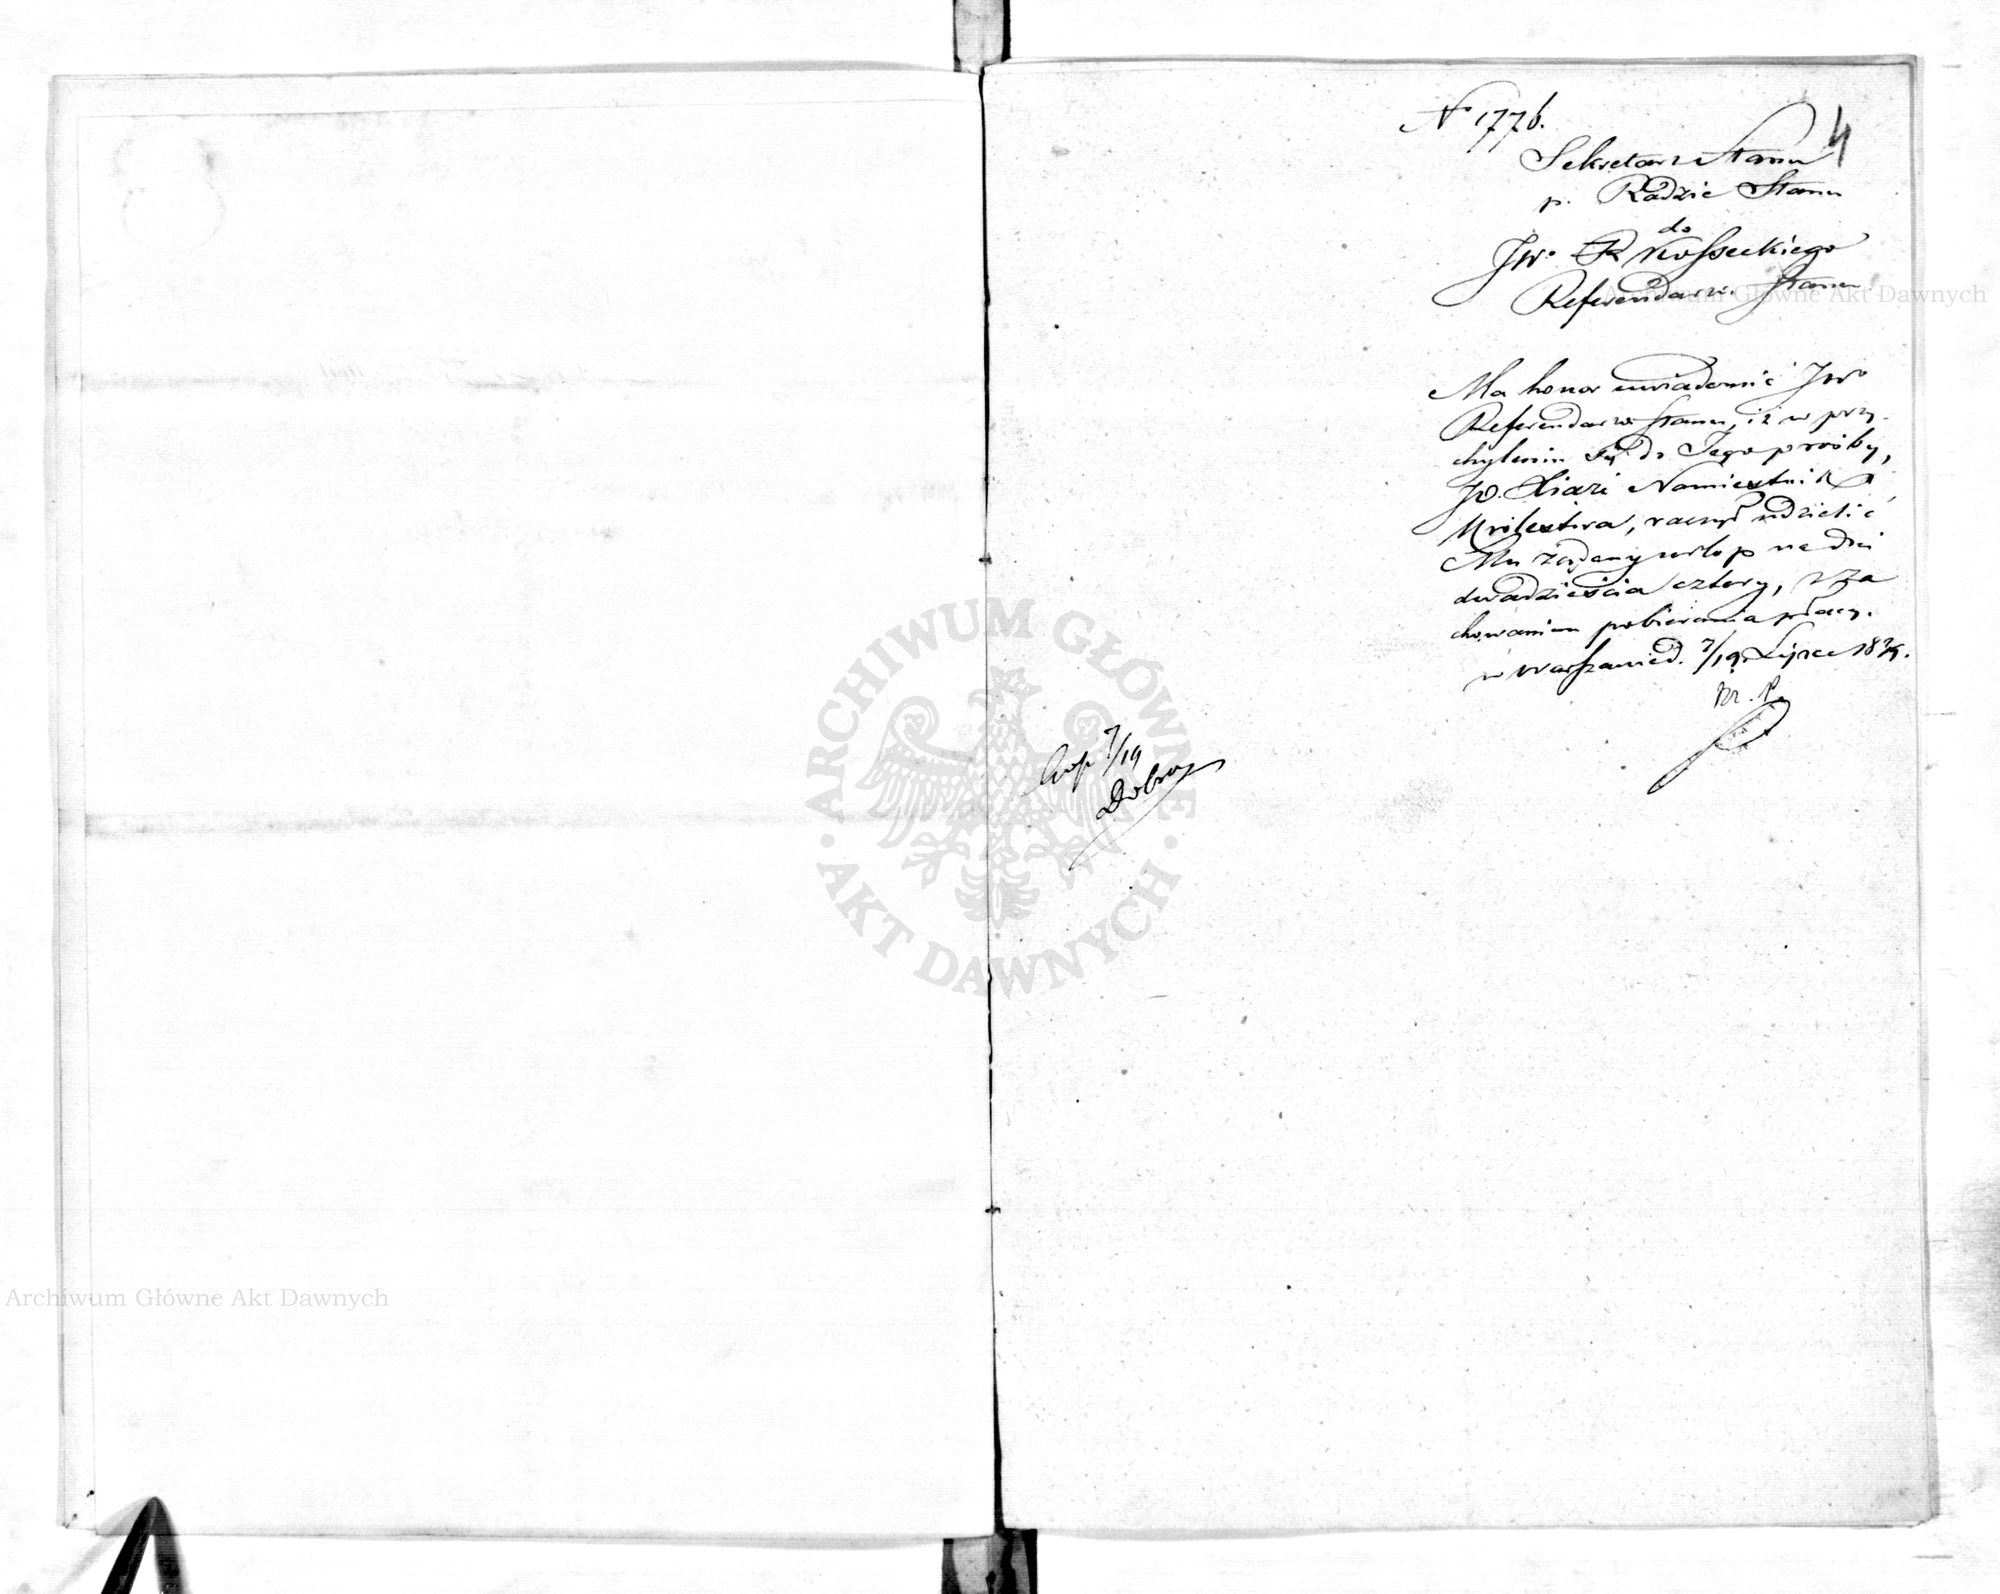 No 1776.
4
Sekretarz Stanu
p. Radzie Stanu
do
JW. Kosseckiego
Referendarza Stanu
Ma honor uwiadomić JWo
Referendarza Stanu, iż w przy-
chyleniu się do Jego prośby,
JO. Xiąże Namiestnik
Królestwa, raczył udzielić
Mu żądany urlop na dni
dwadzieścia cztery, z za
chowaniem pobierania płacy.
w Warszawie d. 7/19 Lipca 1839.
7/19
Dobroz
ARCHIWUM GŁÓWNE
AKT DAWNYCH
Archiwum Główne Akt Dawnych
Archiwum Główne Akt Dawnych